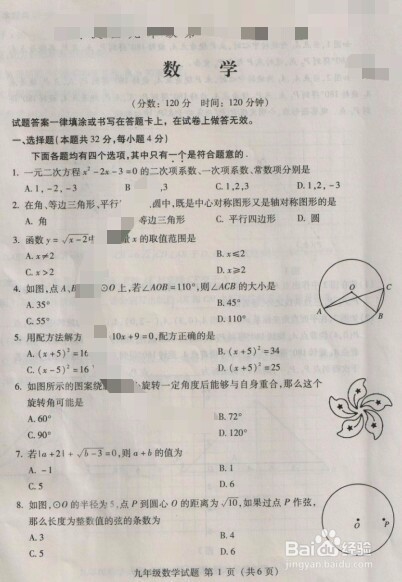 数 学
(分数：120分 时间：120分钟)
试题答案一律填涂或书写在答题卡上，在试卷上做答无效。
一、选择题(本题共32分，每小题4分)
下面各题均有四个选项，其中只有一个是符合题意的．
1. 一元二次方程x²-2x-3=0的二次项系数、一次项系数、常数项分别是
A. 1，-2，-3 B ,3 C. 1,2,3 D. 1,2，-3
2. 在角、等边三角形、平行 圆中，既是中心对称图形又是轴对称图形的是
A. 角 等边三角形 C. 平行四边形 D. 圆
3. 函数y=√x-2 x的取值范围是
A. x≠2 B. x≤2
C. x>2 D. x≥2
4. 如图，点A,B ⊙O上，若∠AOB=110°，则∠ACB的大小是
A. 35° B. 45°
C. 55° D. 110°
O C A B
5. 用配方法解方 10x+9=0，配方正确的是
A. (x+5)²=16 B. (x+5)²=34
C. (x-5)²=16 D. (x+5)²=25
6. 如图所示的图案绕 旋转一定角度后能够与自身重合，那么这个
旋转角可能是
A. 60° B. 72°
C. 90° D. 120°
7. 若|a+2|+√b-3=0，则a+b的值为
A. -1 B. 1
C. 5 D. 6
8. 如图，⊙O的半径为5，点P到圆心O的距离为√10，如果过点P作弦，
那么长度为整数值的弦的条数为
A. 3 B. 4
C. 5 D. 6
O P
九年级数学试题 第1页 (共6页)
Baidu 经验